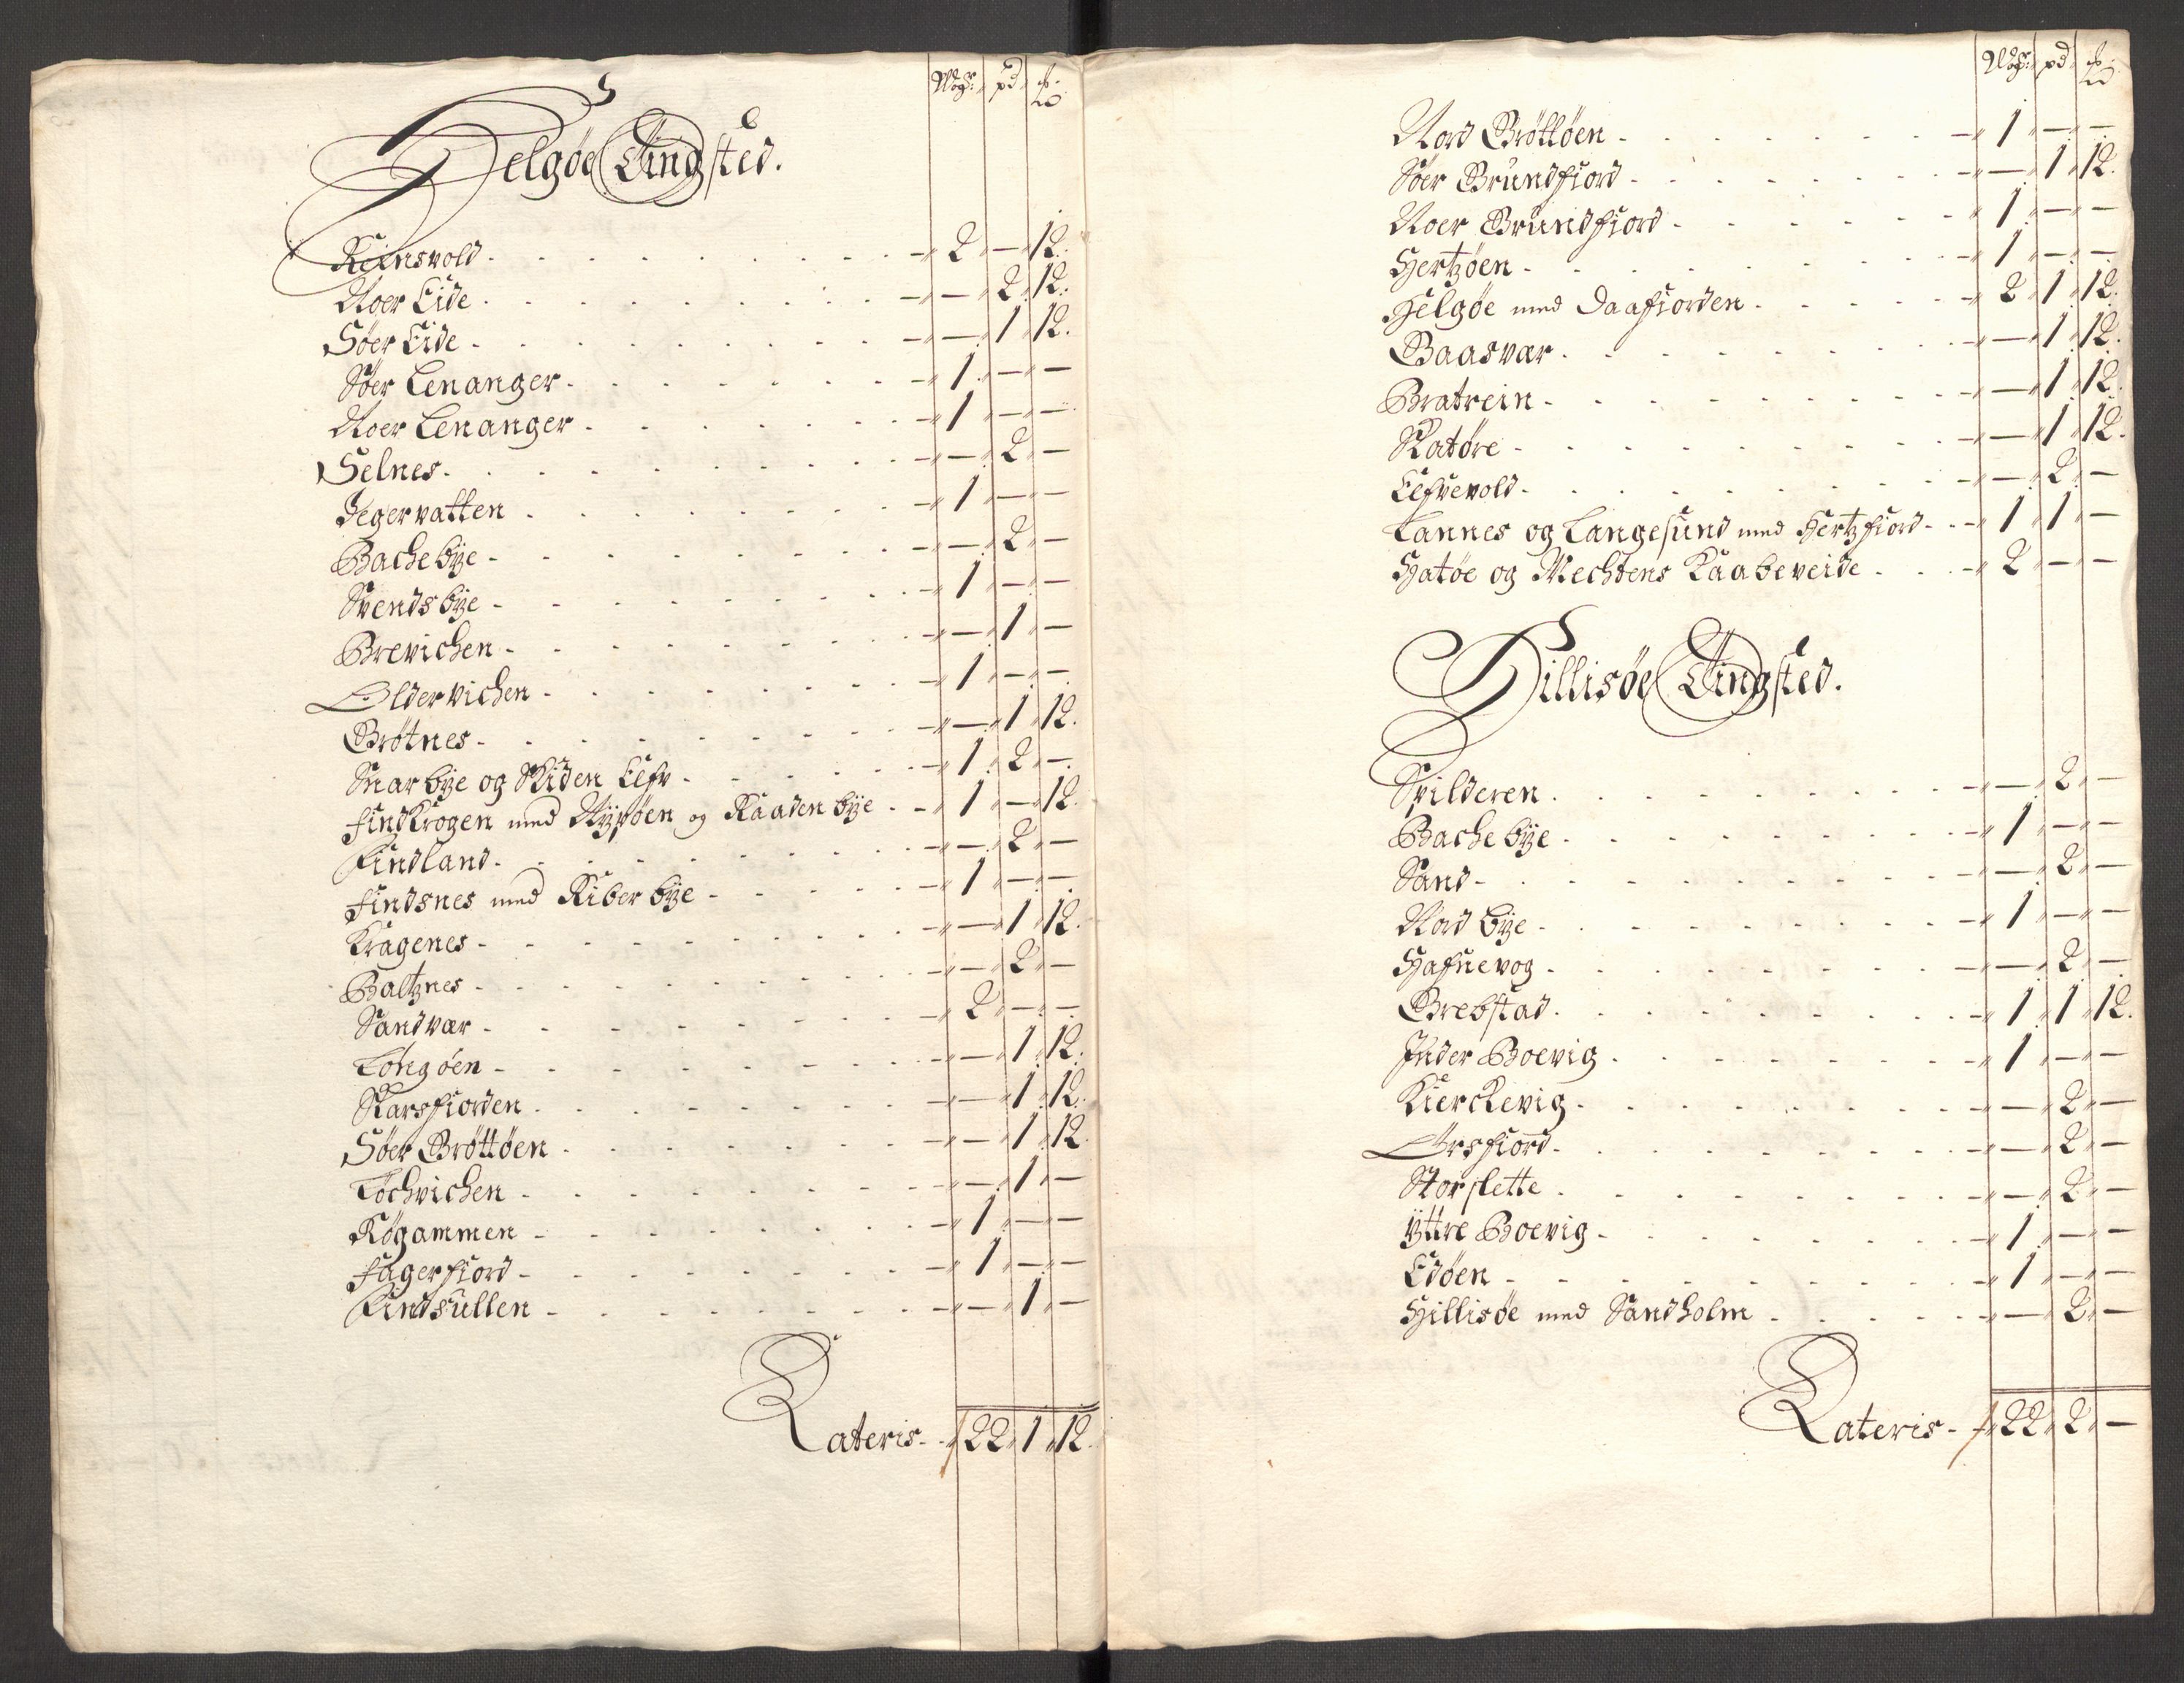 Wog: pd: lb
Helgøe Tingsted.
Reinsvold - 2 - 12.
Noer Eide - - 2. 12.
Søer Eide - - 1 12.
Søer Lenanger - 1 - -
Noer Lenanger - 1 - -
Selnes - - 2 -
Jegervatten - 1 - -
Bachebÿe - - 2 -
Svendsbÿe - 1 - -
Brevichen - - 1 -
Oldervichen - 1 - -
Grøtnes - - 1 12.
Snarbÿe og Skiden Elfv - 1 2 -
Findkrogen med Nÿpøen og Kaadenbÿe - 1 - 12.
Findland - - 2 -
Findsnes med Riberbÿe - 1 - -
Kragenes - - 1 12.
Baltznes - - 2 -
Sandvær - 2 - -
Longøen - - 1 12.
Skarsfiorden - - 1 12.
Søer Grøttøen - - 1 12.
Løchvichen - - 1 -
Køgammen - 1 - -
Fagerfiord - 1 - -
Kindsullen - - 1 -
Lateris - 22 1 12.
Wog: pd: lb
Nord Grøttøen - 1 - -
Søer Grundfiord - - 1 12.
Noer Grundfiord - 1 - -
Hertzøen - 1 - -
Helgøe med Daafiorden - 2 1 12.
Gaasvær - - 1 12.
Bratrein - - 1 12.
Skatøre - - 1 12.
Elfvevold - - 2 -
Lannes og Langesund med Hertzfiord - 1 1 -
Hatøe og Mechtens Kaabeveide - 2 - -
Hillisøe Tingsted.
Spilderen - - 2 -
Bachebÿe - 1 - -
Sand - - 2 -
Nord bÿe - 1 - -
Hafnevog - - 2 -
Grebstad - 1 1 12.
Inder Boevig - 1 - -
Kierckevig - - 2 -
Ørsfiord - - 2 -
Storslette - - 2 -
Ÿttre Boevig - 1 - -
Edøen - 1 - -
Hillisøe med Sandholm - - 2 -
Lateris - 22 2 -